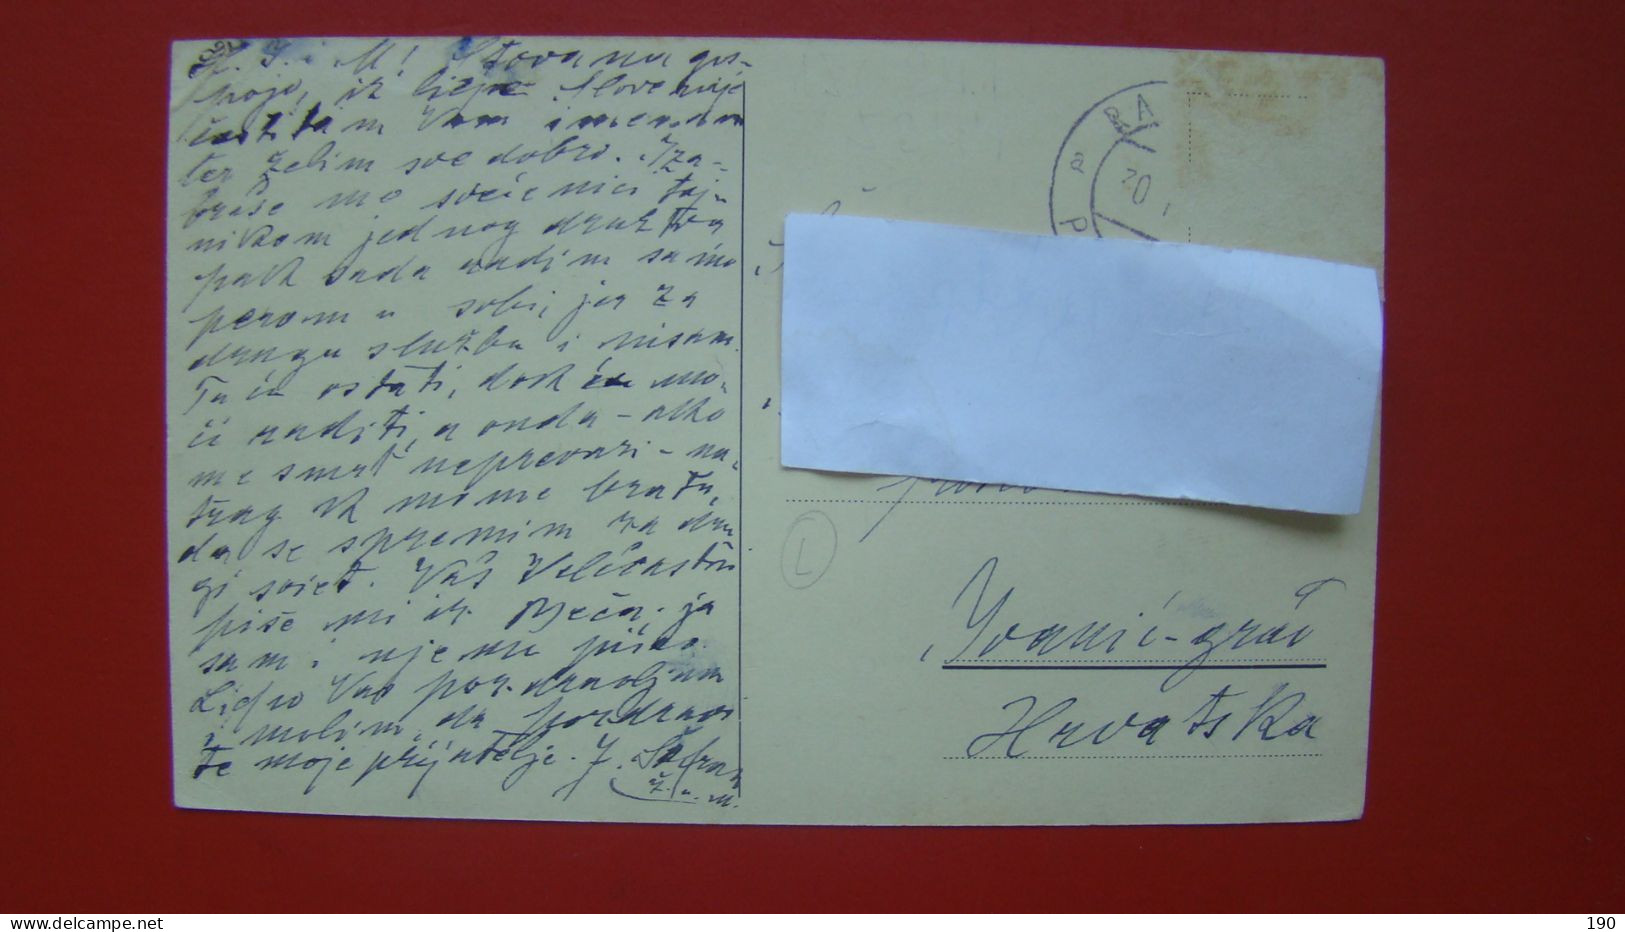 H. I. i M! Štovana gos-
pojo, iz liepe Slovenije
čestitam Vam imendan
ter želim sve dobro. Iza-
braše me svećenici taj-
nikom jednog družtva
pack sada radim samo
perom u sobi, jer za
drugu službu i nisam.
Tu ću ostati, dock ću mo-
ći raditi, a onda - ako
me smrt neprevari - na-
trag k mome bratu,
da se spremim za dru
gi sviet. Vaš Veličastni
piše mi iz Beča, ja
sam i njemu pisao.
Liepo Vas pozdravljam
i molim, da pozdravi
te moje prijatelje. J. Šafran
ž. u. M.
A
20
P
L
Ivanić-grad
Hrvatska
190